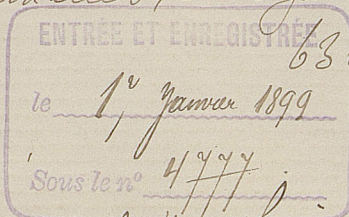 ENTRÉE ET ENREGISTRÉE
63
le 1r Janvier 1899
Sous le no 4777